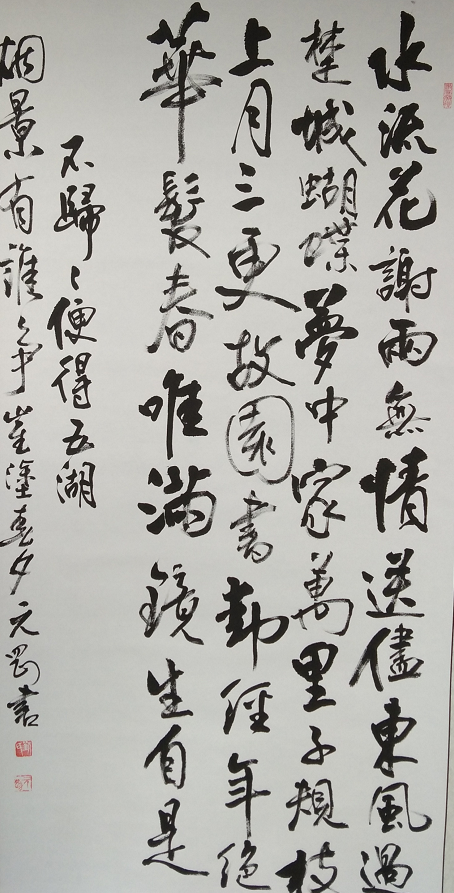 水流花謝兩無情送儘東風過
楚城蝴蝶夢中家萬里子規枝
上月三更故園書動經年絕
華髮春唯滿鏡生自是
不歸〻便得五湖
烟景有誰爭崔塗春夕元書